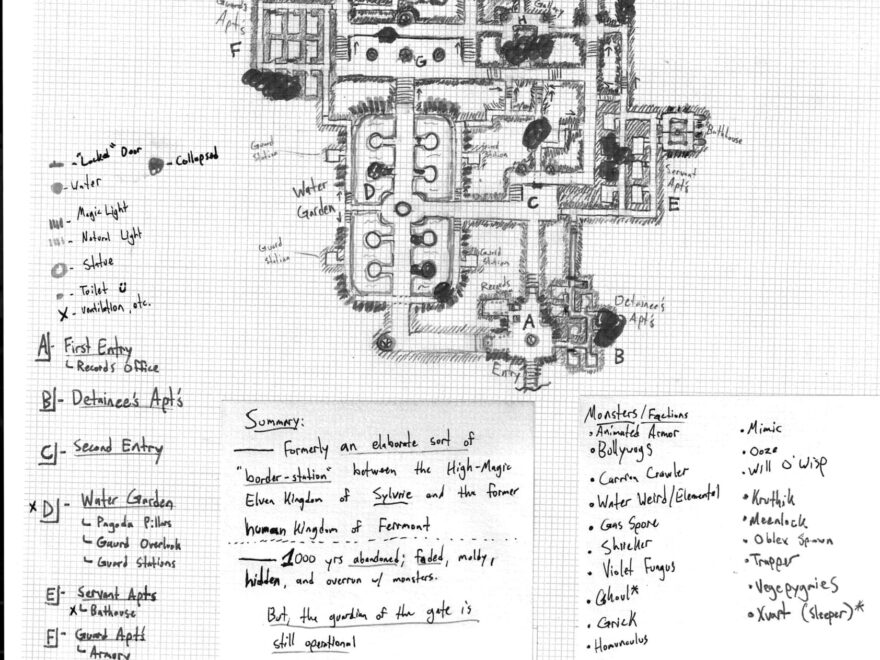 Gallery
H
Apt's
F
G
Bathhouse
"Locked" Door
Collapsed
Water
Magic Light
Natural Light
Statue
Toilet Ü
X - Ventilation, etc.
Guard Station
Guard Station
Water Garden
D
C
Servant Apt's
E
Guard Station
Guard Station
Records
A
Detainee's Apt's
B
Entry
A - First Entry
Records Office
B - Detainee's Apt's
C - Second Entry
X D - Water Garden
Pagoda Pillars
Guard Overlook
Guard Stations
E - Servant Apts
X Bathouse
F - Guard Apt's
Armory
Summary:
Formerly an elaborate sort of
"border-station" between the High-Magic
Elven Kingdom of Sylvrie and the former
human Kingdom of Ferrmont
1000 yrs abandoned; faded, moldy,
hidden, and overrun w/ monsters.
But, the guardian of the gate is
still operational
Monsters/Factions
• Animated Armor
• Bullywugs
• Carrion Crawler
• Water Weird/Elemental
• Gas Spore
• Shrieker
• Violet Fungus
• Ghoul*
• Grick
• Homunculus
• Mimic
• Ooze
• Will O' Wisp
• Kruthik
• Meenlock
• Oblex Spawn
• Trapper
• Vegepygmies
• Xvart (sleeper)*